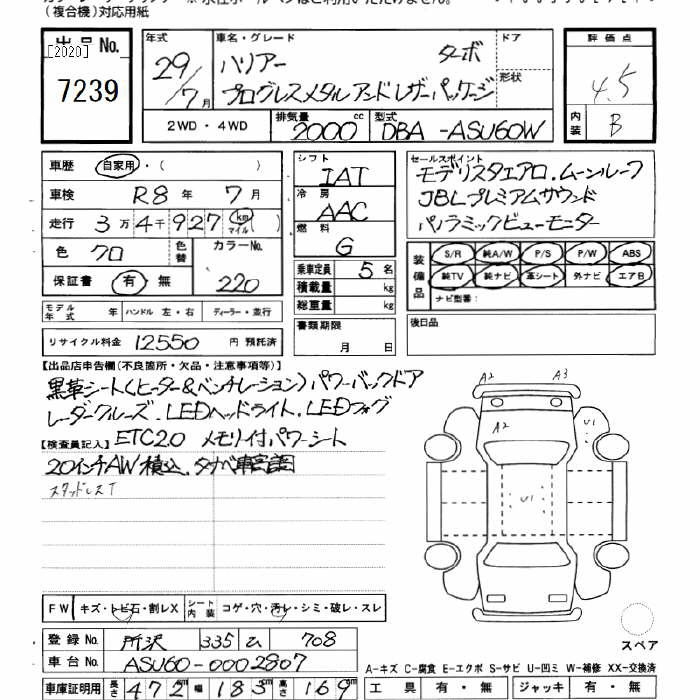 (複合機)対応用紙
出品No. 年式 車名・グレード ドア 評価点
[2020]
7239
29/7月 ハリアー ターボ 形状 4.5
プログレスメタルアンドレザーパッケージ
内装 B
2WD・4WD 排気量 2000 cc 型式 DBA-ASU60W
車歴 自家用・( )
車検 R8年 7月
走行 3万4千927 km マイル ( )
色 クロ 色替 カラーNo. 220
保証書 有・無
シフト IAT
冷房 AAC
燃料 G
乗車定員 5名
積載量 kg
総重量 kg
書類期限 月 日
セールスポイント
モデリスタエアロ.ムーンルーフ
JBLプレミアムサウンド
パノラミックビューモニター
装備品 S/R 純A/W P/S P/W ABS
純TV 純ナビ 革シート 外ナビ エアB
ナビ型番:
後日品
モデル年式 年 ハンドル 左・右 ディーラー・並行
リサイクル料金 12550 円 預託済
【出品店申告欄(不良箇所・欠品・注意事項等)】
黒革シート(ヒーター&ベンチレーション)パワーバックドア
レーダークルーズ.LEDヘッドライト.LEDフォグ
【検査員記入】 ETC2.0 メモリ付パワーシート
20インチAW積込.タナベ車高調
スタッドレスT
A2 A3
A2 U1
U1
FW キズ・トビ石・割レX シート内装 コゲ・穴・汚レ・シミ・破レ・スレ
登録No. 所沢 335 ム 708
車台No. ASU60-0002807
車庫証明用 長さ 472cm 幅 183cm 高さ 169cm
スペア
A-キズ C-腐食 E-エクボ S-サビ U-凹ミ W-補修 XX-交換済
工具 有・無 ジャッキ 有・無